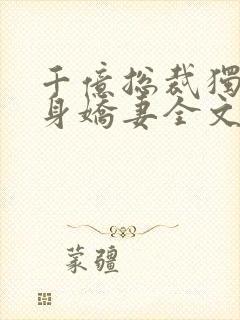 千億總裁獨
身嬌妻全文
蒙疆